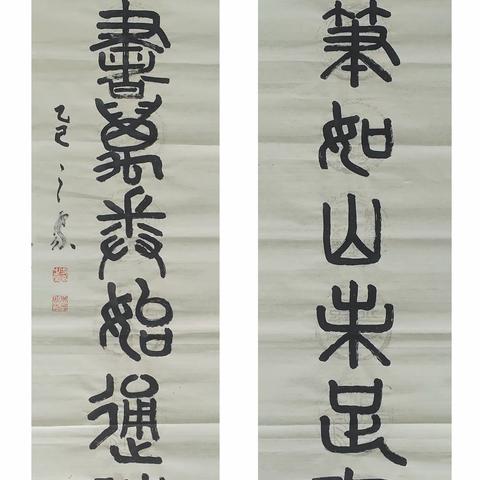 筆如山未足
書萬卷始通
乙巳